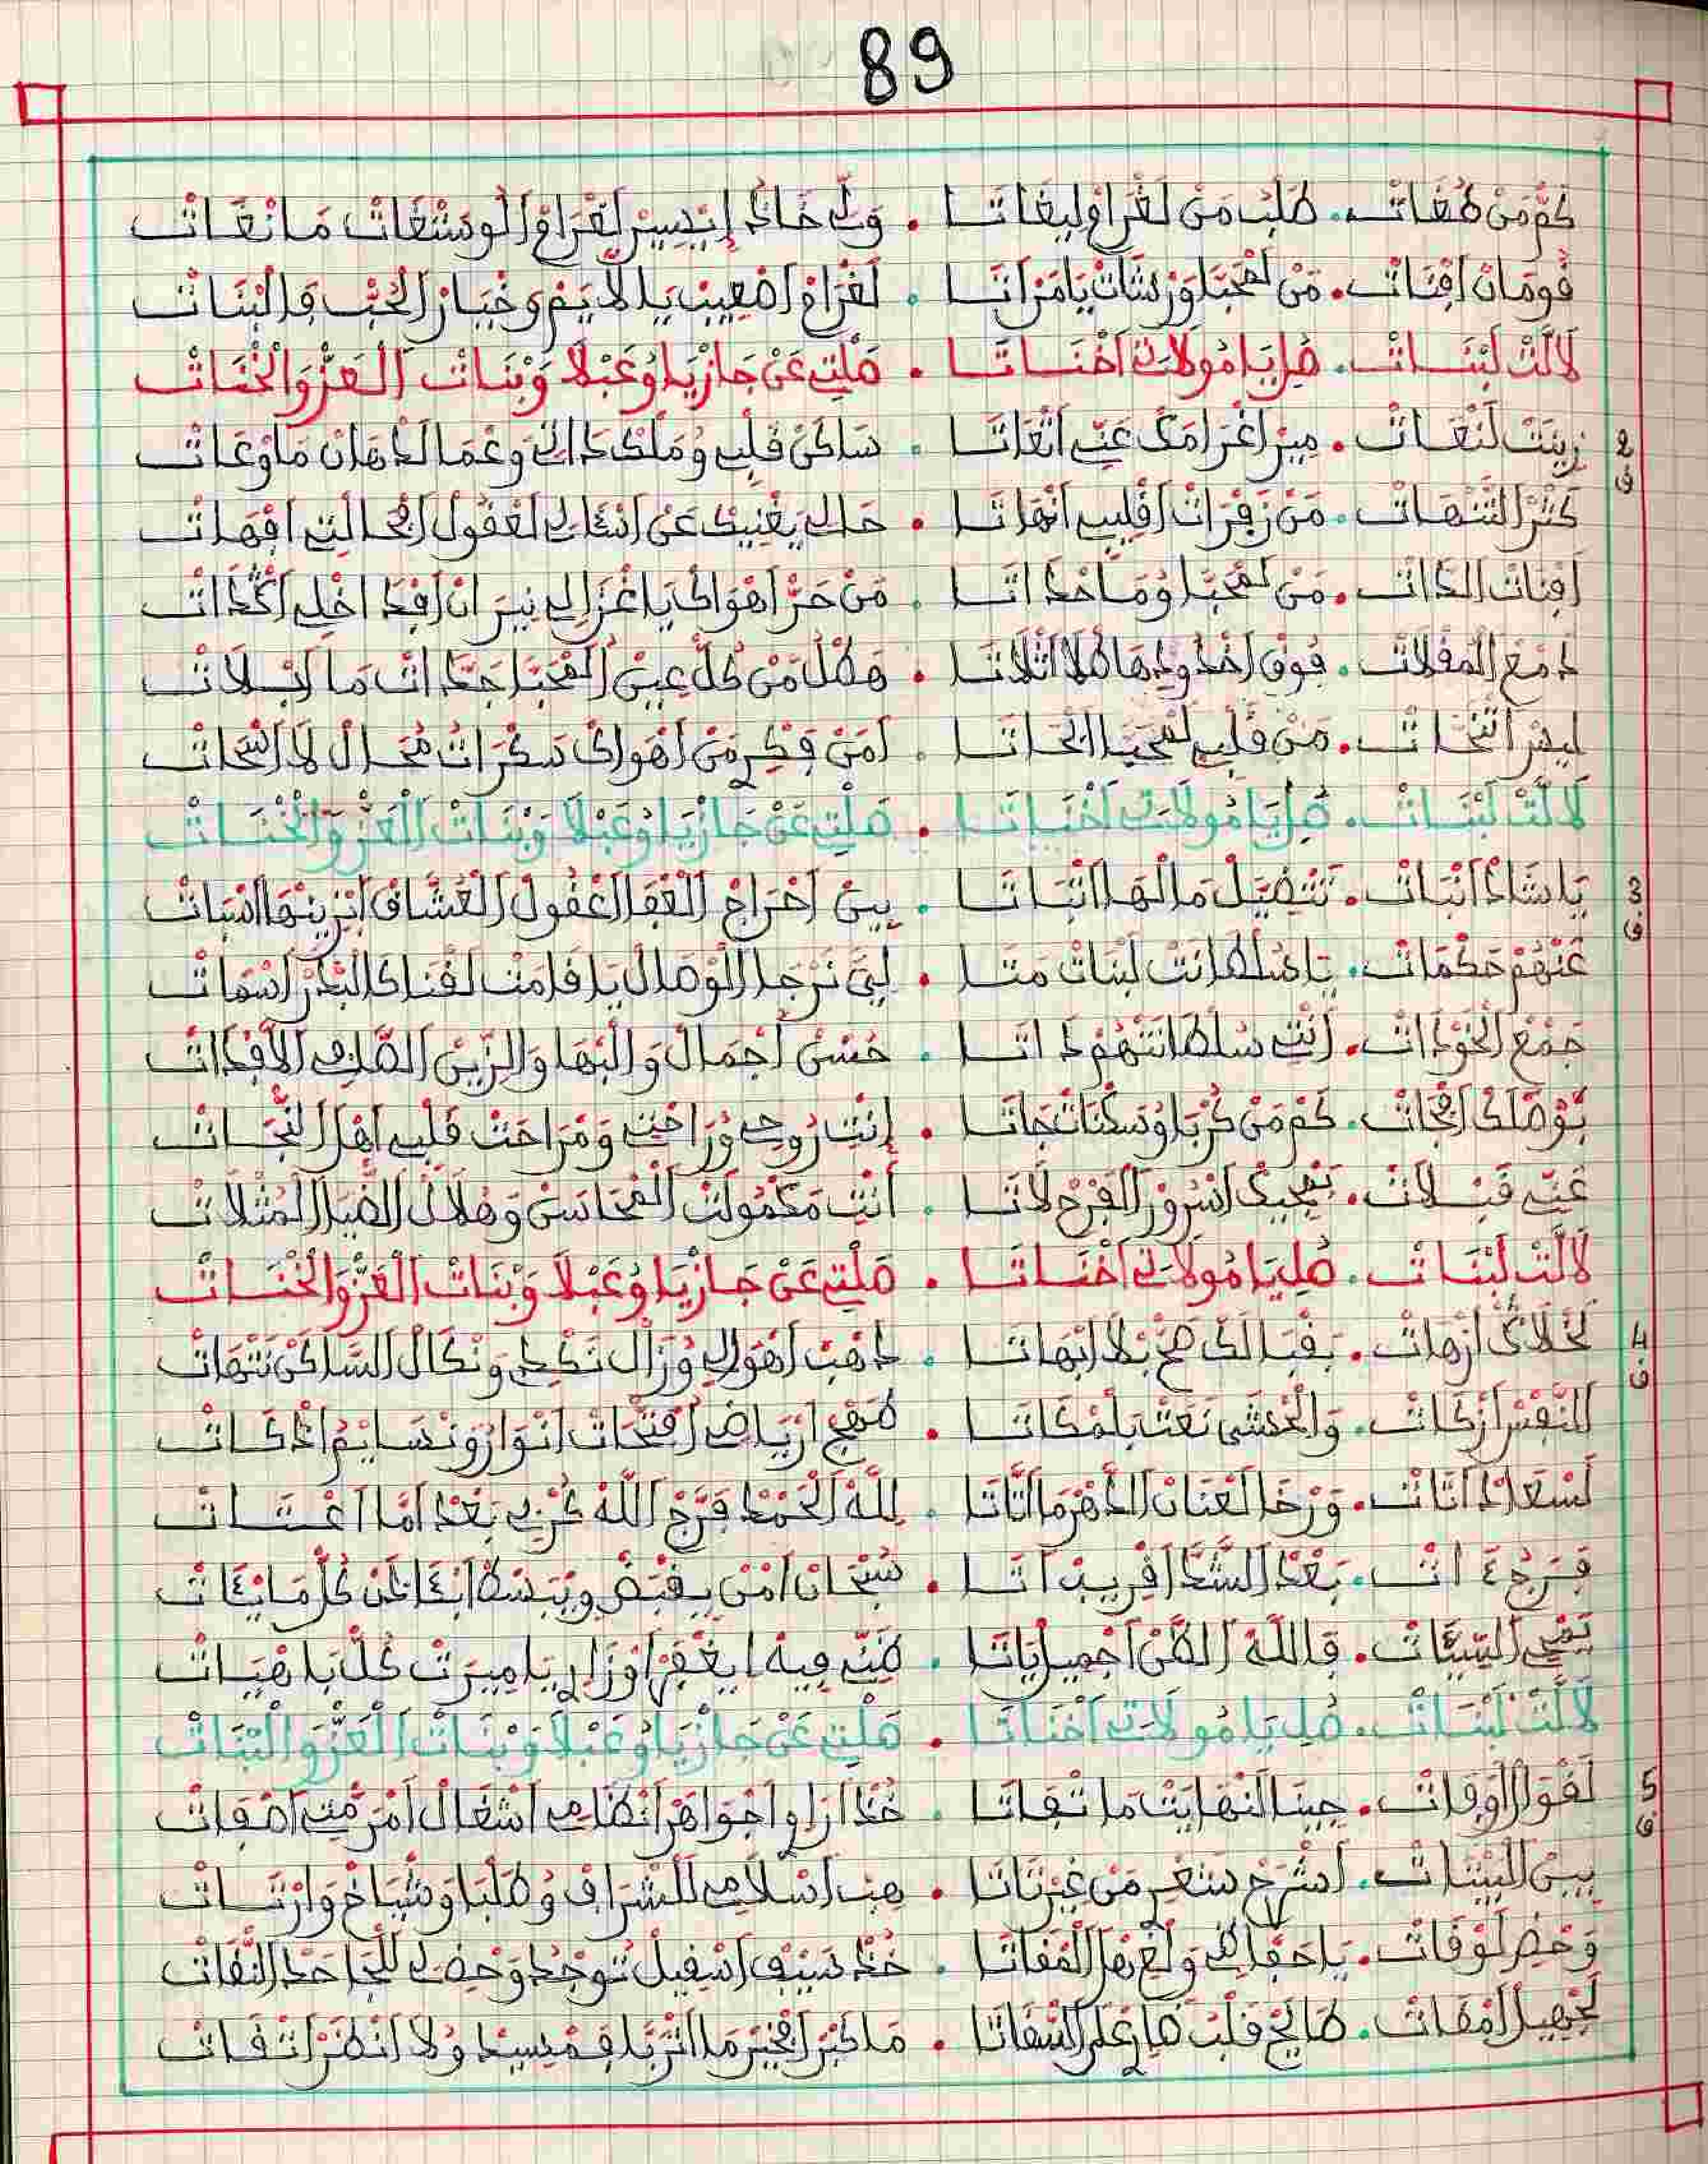 89
كم من طغات. طلب من لغرام ليغاتا. ولي خاد إيسير لغرام الوستغات ما نغات
فومان افنات. من لمحبا ورشات يا مراتا. لغرام اصعيب يلا يم وخيار الحب فالبنات
لالت لبنات. صل يا مولاتي اخناتا. صلتي عن جازيا وعبلا وبنات العز والخنات
2 ف
زينت لنعات. ميز اغرامك عني انعاتا. ساكن قلبي وملك داتي وعما لدهان ما وعات
كثر التنهات. من زفرات اقليبي انهاتا. حالي يغنيك عن اسئالي لعقول افحالتي افهات
افنات الذات. من لمحبا وما حداتا. من حر اهواك يا غزالي نيران افداخلي اكدات
دمع المقلات. فوق اخدودها طلا اتلاتا. هطل من كل عين المحبا جدات ما ابلات
ليس اتنحات. من قلبي لمحبا انحاتا. امن فكري من اهواك سكرات محال لا انتحات
لالت لبنات. صل يا مولاتي اخناتا. صلتي عن جازيا وعبلا وبنات العز والخنات
3 ف
يا شاد انبات. تتفيل مالها اتباتا. بين احراج الغفا اعقول العشاق ابزينها اسبات
عنهم حكمات. يا سلطانت لبنات متا. ليق نرجا الوصال يا قامت لقنا كالبدر اسمات
جمع الخودات. انتي سلطانتهم داتا. حسن اجمال والبها والزين الصافي الافدات
بوصلك انجات. كم من كربا وسكنات جاتا. انتي روحي وراحتي ومراحت قلبي اهل النجات
عني قبلات. بمجيك اسرور الفرح لاتا. أنتي مكمولت المحاسن وهلال الضيا المثلات
لالت لبنات. صل يا مولاتي اخناتا. صلتي عن جازيا وعبلا وبنات العز والخنات
4 ف
لخلاك ازهات. بقبالك صح بلا ابهاتا. دهب اهوالي وزال نكدي ونكال الساكن نتهات
النفس ازكات. والحسن نعت بلمكاتا. مهج ارياضي افتحات انوار ونسايم اذكات
لسعاد اتات. ورخا لعنان الدهر ما اتاتا. لله الحمد فرج الله كربي بعد اما اعسات
فرج ءات. بعد الشدا اقريب اتا. سبحان من يقبض ويبسط ابءاذن كل ما يءات
تمحي السيئات. فالله الظن اجميل ياتا. ظني فيه ايغفر اوزاري يا ميرت كل باهيات
لالت لبنات. صل يا مولاتي اخناتا. صلتي عن جازيا وعبلا وبنات العز والبنات
5 ف
لقوال اوفات. جينا النهايت ما تفاتا. خد اراوي اجواهر انظامي اشغال امرمتي اصفات
بين البيتات. اشرح ستعر من غير تاتا. هب اسلامي للشراف وطلبا وشياخ وارتات
وحض لوقات. يا حفاظي ولغي بهل المقاتا. خد سيف اسقيل توجد وحضي للجاحد النقات
لجهيل امقات. طايح قلب هاري على السفاتا. ما كبر افخير ما اتربا فمسيد ولا انظر اتقات